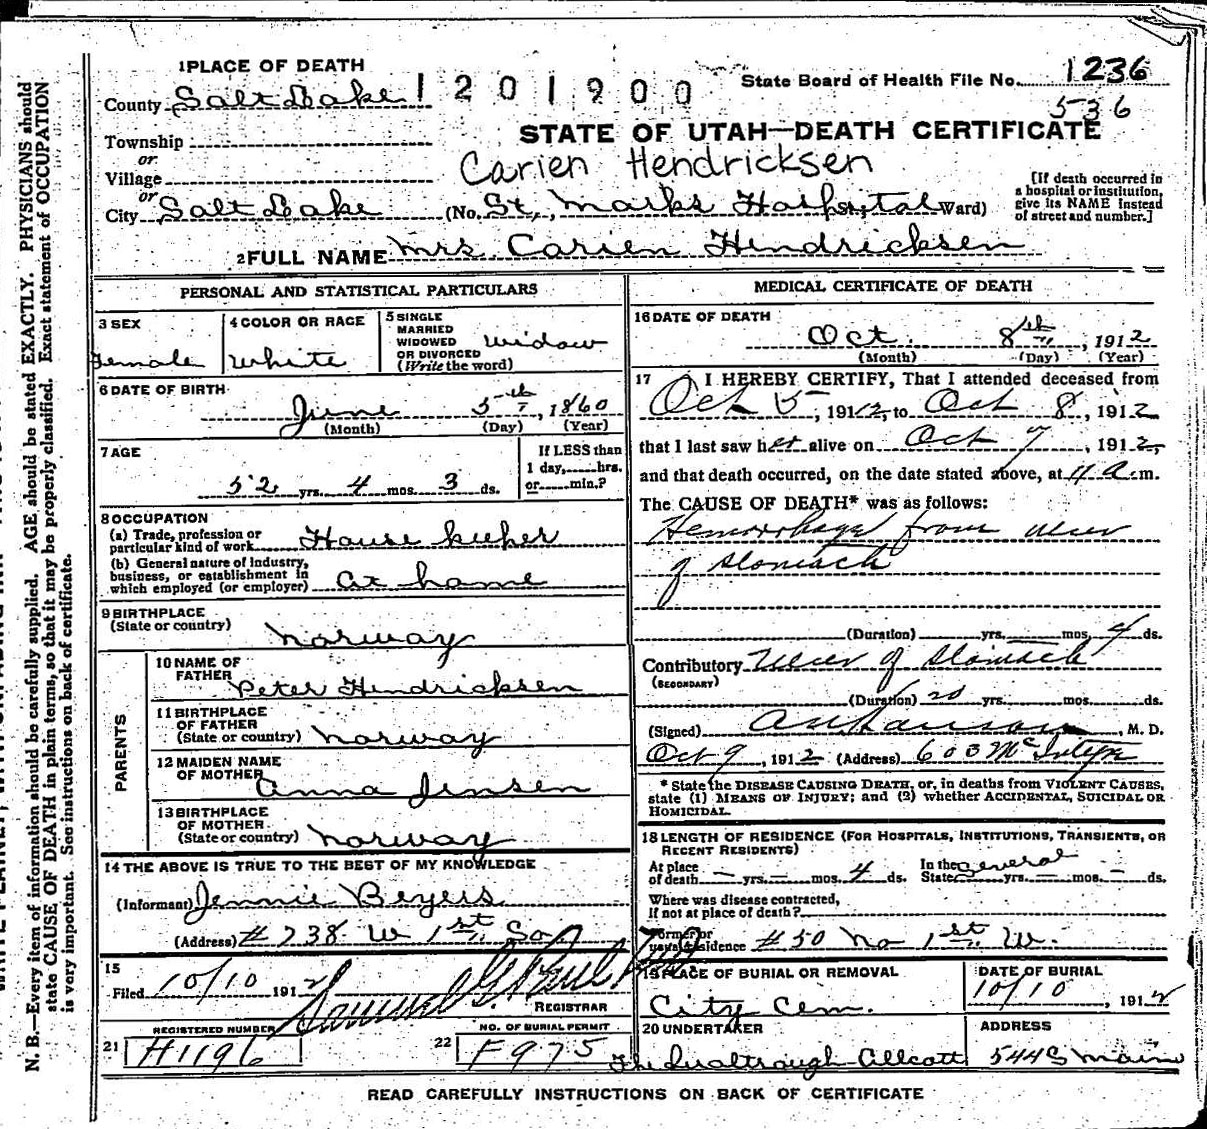 1 PLACE OF DEATH
State Board of Health File No. 1236
County Salt Lake 1201900
536
STATE OF UTAH—DEATH CERTIFICATE
Township
or
Village
Carien Hendricksen
or
City Salt Lake (No. St, Marks Hospital St., Ward)
[If death occurred in
a hospital or institution,
give its NAME instead
of street and number.]
2 FULL NAME Mrs Carien Hendricksen
PERSONAL AND STATISTICAL PARTICULARS
3 SEX
Female
4 COLOR OR RACE
White
5 SINGLE
MARRIED
WIDOWED
OR DIVORCED
(Write the word)
Widow
6 DATE OF BIRTH
June 5th, 1860
(Month) (Day) (Year)
7 AGE
52 yrs. 4 mos. 3 ds.
If LESS than
1 day, hrs.
or min.?
8 OCCUPATION
(a) Trade, profession or
particular kind of work House keeper
(b) General nature of industry,
business, or establishment in
which employed (or employer) at home
9 BIRTHPLACE
(State or country)
Norway
PARENTS
10 NAME OF
FATHER
Peter Hendricksen
11 BIRTHPLACE
OF FATHER
(State or country) Norway
12 MAIDEN NAME
OF MOTHER
Anna Jensen
13 BIRTHPLACE
OF MOTHER
(State or country) Norway
14 THE ABOVE IS TRUE TO THE BEST OF MY KNOWLEDGE
(Informant) Jennie Beyers
(Address) # 738 W 1st So
15
Filed 10/10 1912
REGISTRAR
REGISTERED NUMBER
21 H1196
NO. OF BURIAL PERMIT
22 F975
MEDICAL CERTIFICATE OF DEATH
16 DATE OF DEATH
Oct. 8th, 1912
(Month) (Day) (Year)
17 I HEREBY CERTIFY, That I attended deceased from
Oct 5, 1912, to Oct 8, 1912
that I last saw her alive on Oct 7, 1912,
and that death occurred, on the date stated above, at 4 a.m.
The CAUSE OF DEATH* was as follows:
Hemorrhage from ulcer
of stomach
(Duration) yrs. mos. 4 ds.
Contributory Ulcer of stomach
(SECONDARY)
(Duration) 20 yrs. mos. ds.
(Signed) M. D.
Oct 9, 1912 (Address) 603 McIntyre
* State the DISEASE CAUSING DEATH, or, in deaths from VIOLENT CAUSES,
state (1) MEANS OF INJURY; and (2) whether ACCIDENTAL, SUICIDAL OR
HOMICIDAL.
18 LENGTH OF RESIDENCE (FOR HOSPITALS, INSTITUTIONS, TRANSIENTS, OR
RECENT RESIDENTS)
At place
of death — yrs. — mos. 4 ds.
In the
State yrs. — mos. — ds.
several
Where was disease contracted,
If not at place of death?
Former or
usual residence # 50 No 1st W.
19 PLACE OF BURIAL OR REMOVAL
City Cem.
DATE OF BURIAL
10/10, 1912
20 UNDERTAKER
ADDRESS
544 S Main
READ CAREFULLY INSTRUCTIONS ON BACK OF CERTIFICATE
N. B.—Every item of information should be carefully supplied. AGE should be stated EXACTLY. PHYSICIANS should
state CAUSE OF DEATH in plain terms, so that it may be properly classified. Exact statement of OCCUPATION
is very important. See instructions on back of certificate.